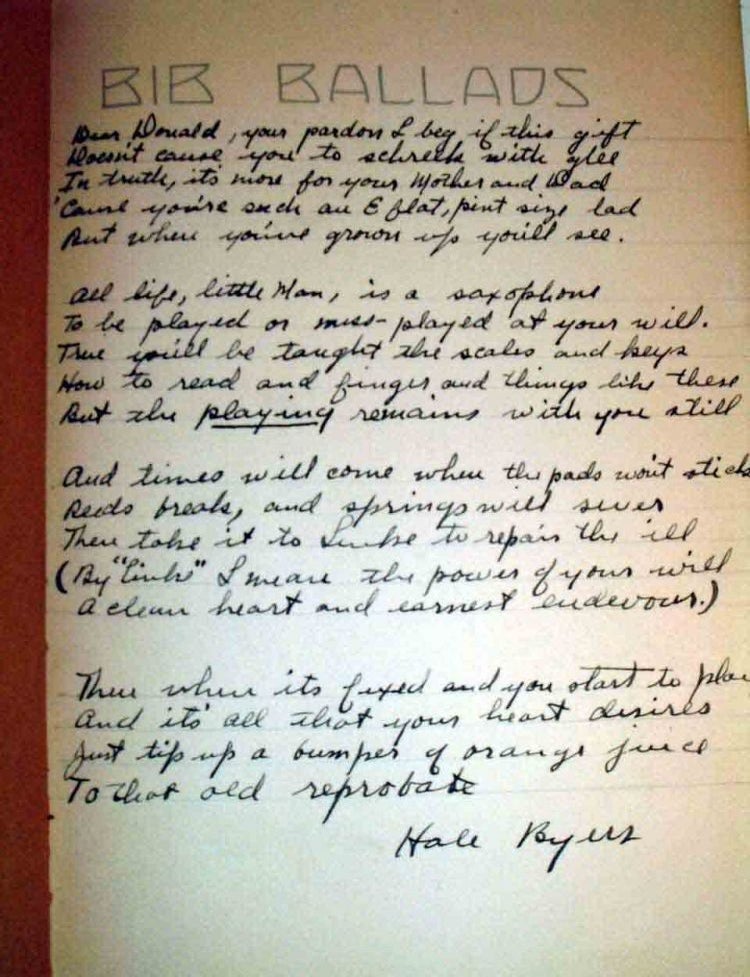 BIB BALLADS
Dear Donald, your pardon I beg if this gift
Doesn't cause you to schreek with glee
In truth, it's more for your Mother and Dad
'Cause you're such an E flat, pint size lad
But when you've grown up you'll see.
All life, little Man, is a saxophone
To be played or miss-played at your will.
True you'll be taught the scales and keys
How to read and finger and things like these
But the playing remains with you still
And times will come when the pads won't stick
Reeds break, and springs will sever
Then take it to Linke to repair the ill
(By "Link" I mean the power of your will
A clean heart and earnest endevour.)
Then when its fixed and you start to play
And it's all that your heart desires
Just tip up a bumper of orange juice
To that old reprobate
Hale Byers